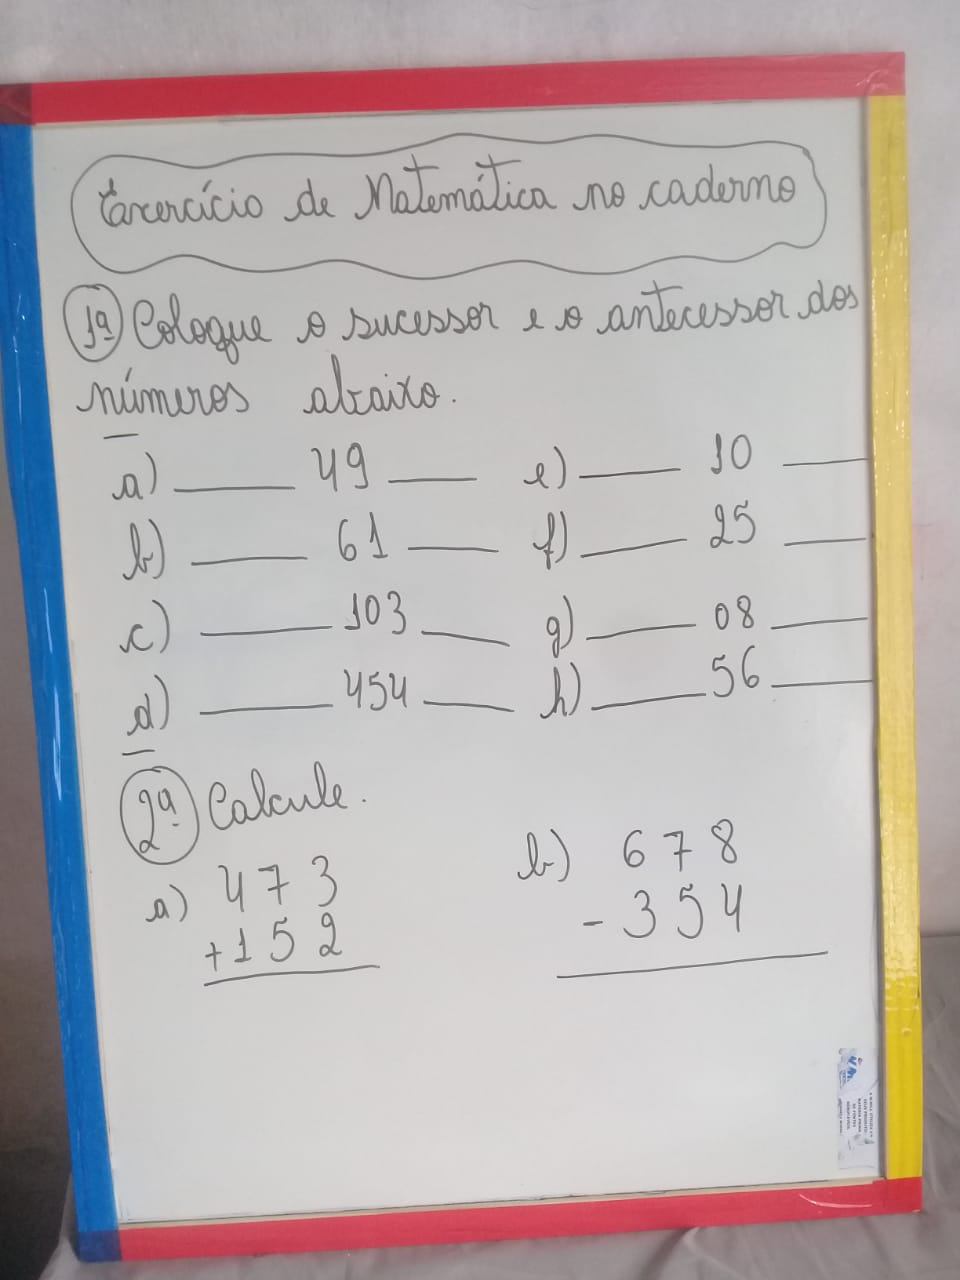 Exercício de Matemática no caderno
1ª Coloque o sucessor e o antecessor dos
números abaixo.
a) ____ 49 ____ e) ____ 10 ____
b) ____ 61 ____ f) ____ 25 ____
c) ____ 103 ____ g) ____ 08 ____
d) ____ 454 ____ h) ____ 56 ____
2ª Calcule.
a) 473
+152
b) 678
-354